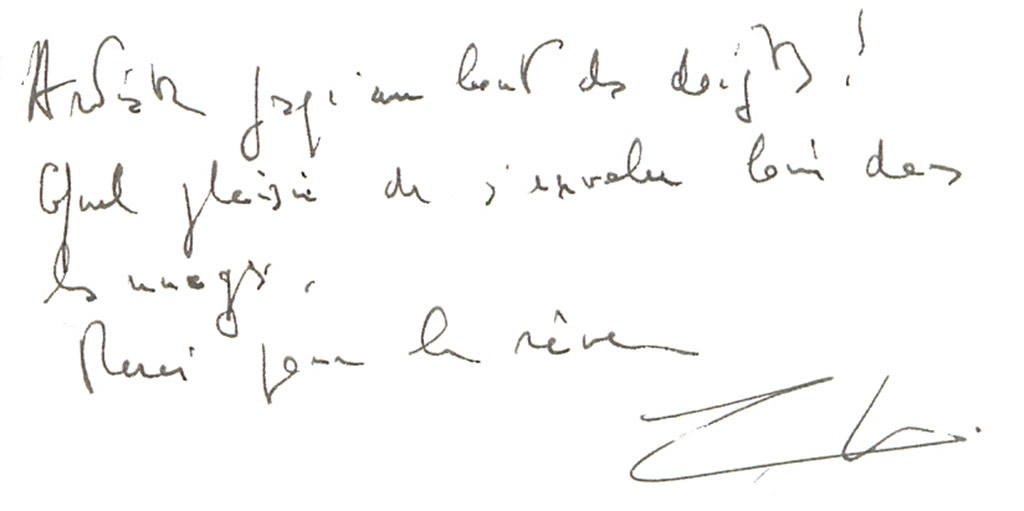 Artiste jusqu'au bout des doigts !
Quel plaisir de s'envoler loin dans
les nuages.
Merci pour le rêve